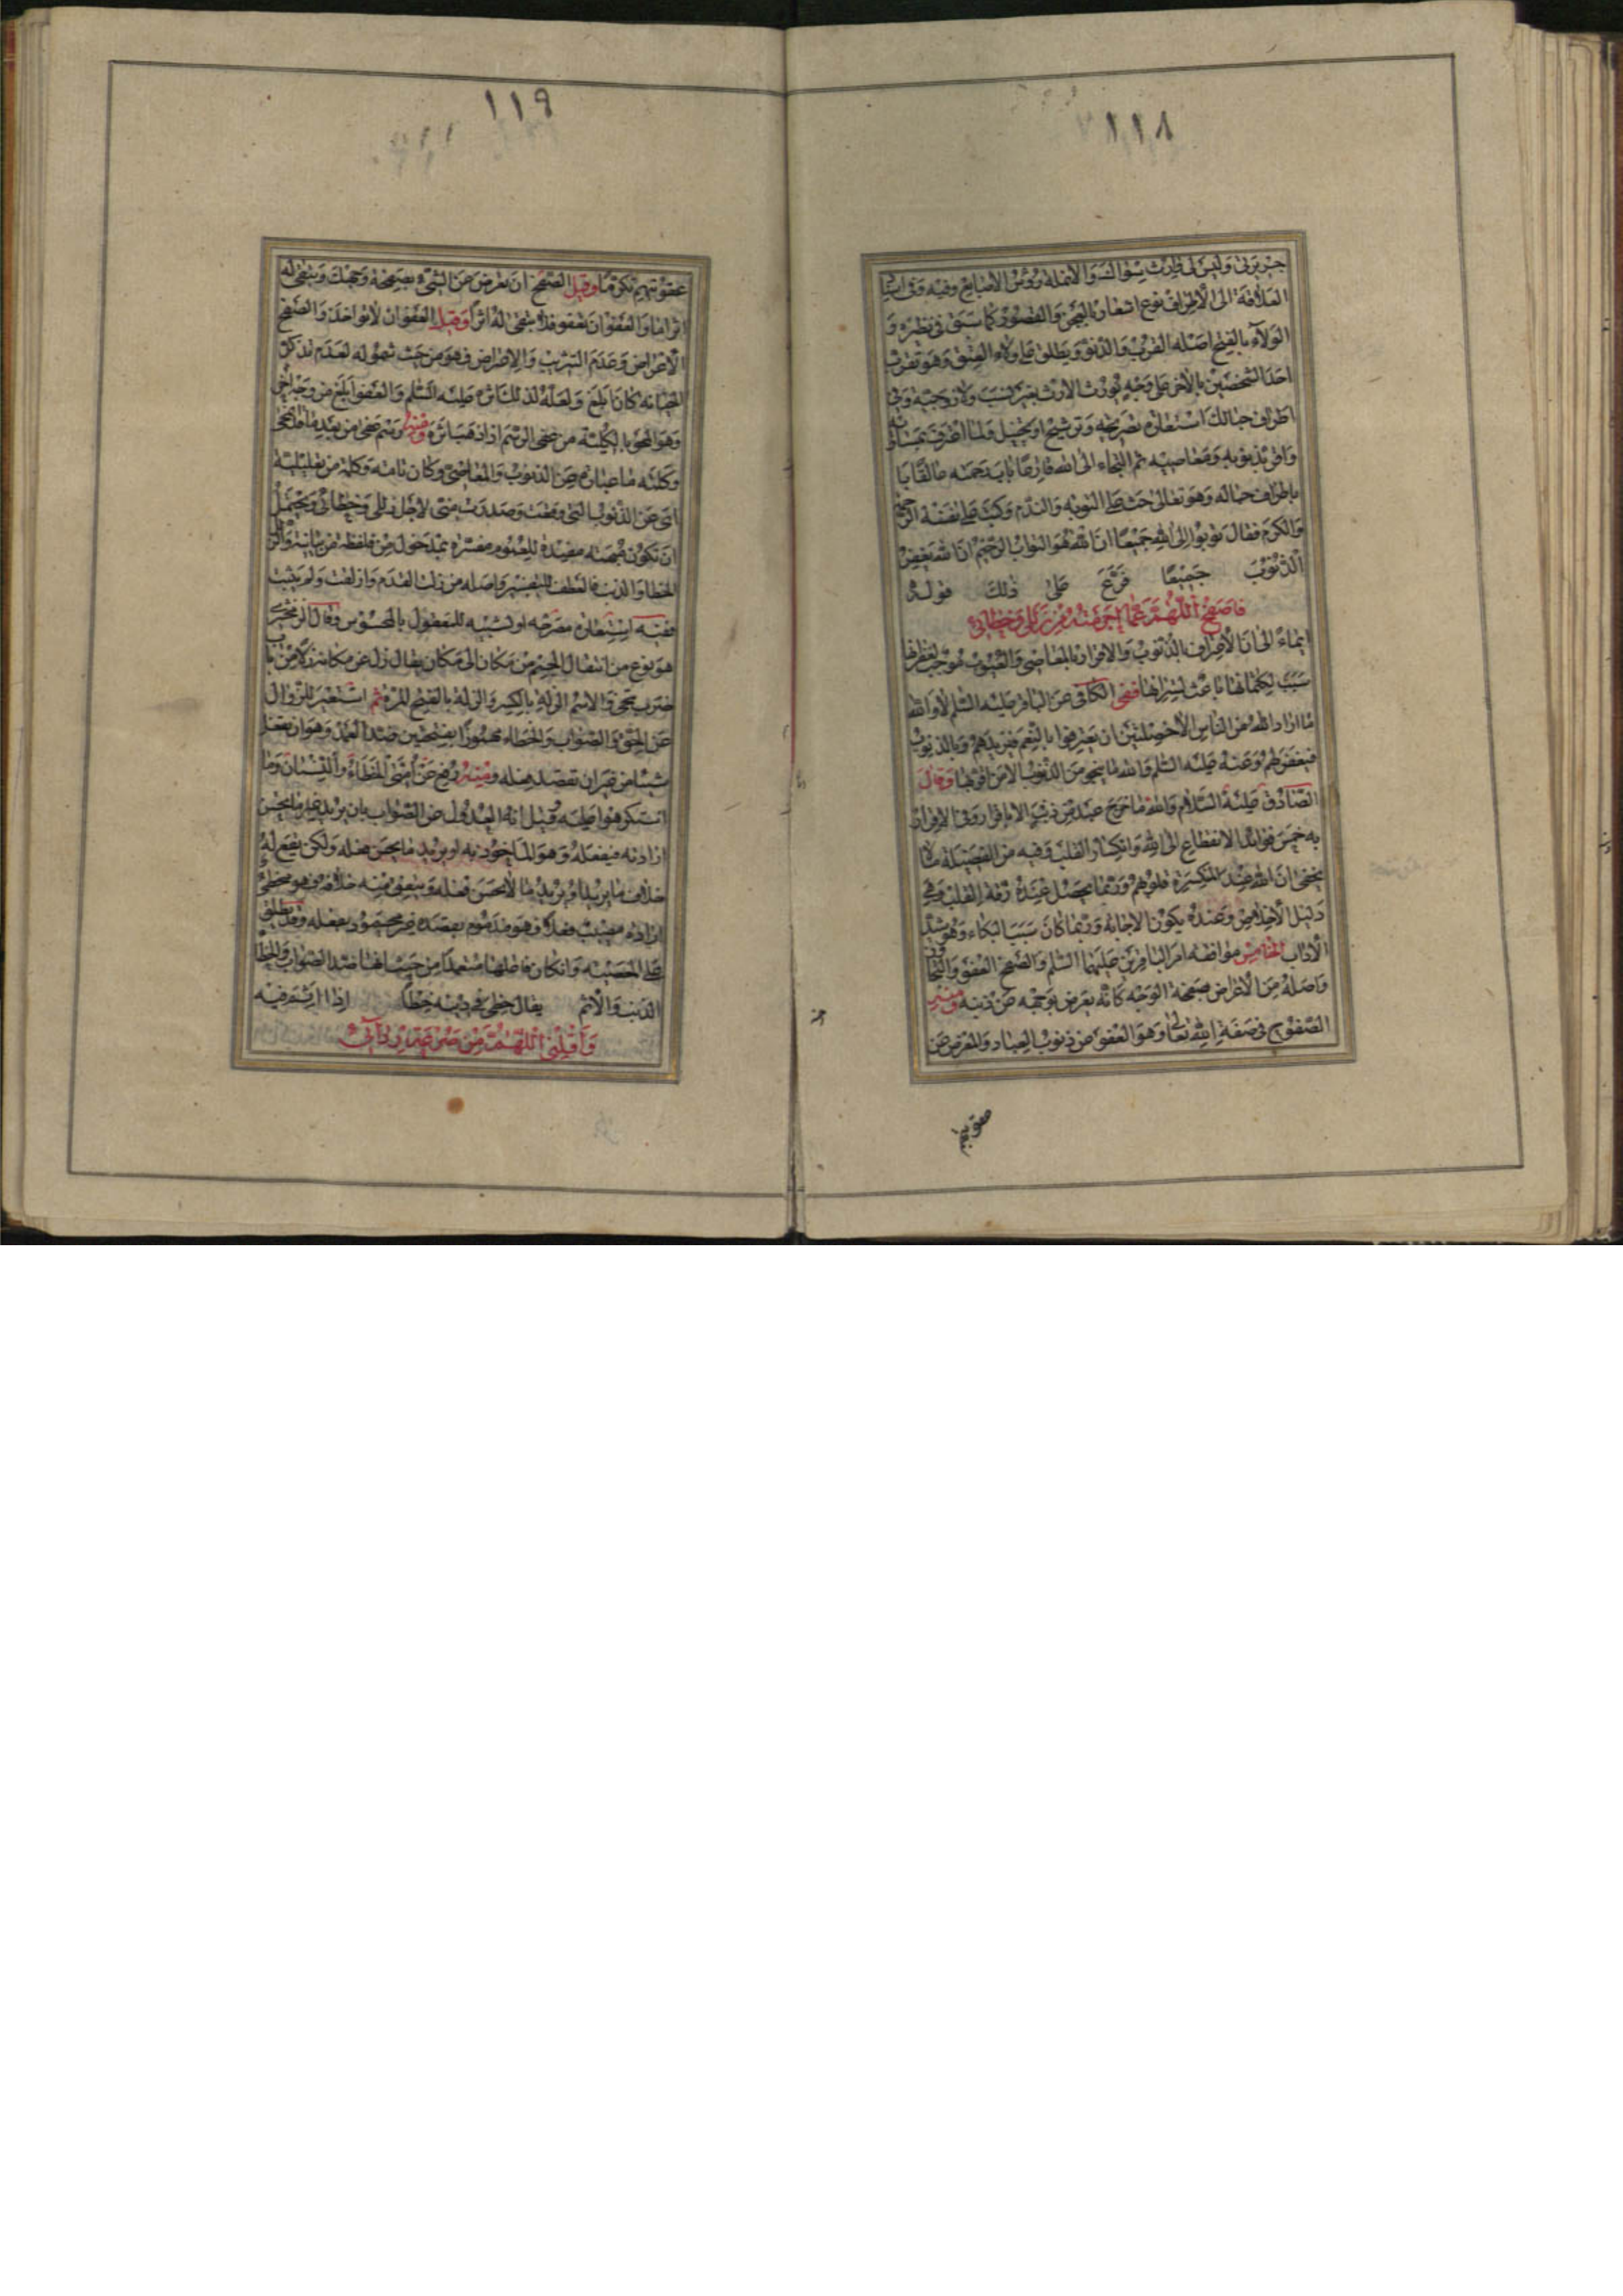 ١١٨
العلاقة الى الاطراف نوع اشعار بالعجز والقصور كما سبق في نظره و
الولاء بالفتح اصله القرب والدنو ويطلق على ولاء العتق وهو تقرب
احد الشخصين بالاخر على وجه يورث الارث بغير نسب ولا زوجية وفي
اطراف حبالك استعارة تصريحية وترشيح او تخييل ولما اعترف
واقر بذنوبه ومعاصيه ثم التجاء الى الله قارعا باب رحمته
باطراف حباله وهو تعالى حث على التوبة والندم وكتب على نفسه
والكرم فقال توبوا الى الله جميعا ان الله هو التواب الرحيم ان الله يغفر
الذنوب جميعا فرع على ذلك قوله
فاصفح اللهم عما اجرمته من زللي وخطائي
ايماء الى ان الاعتراف بالذنوب والاقرار بالمعاصي والعيوب موجب لغفرانها
سبب لكتمانها باعث لسترها ففي الكافي عن الباقر عليه السلم لا والله
ما اراد الله من الناس الا خصلتين ان يعترفوا بالنعم فيزيدهم وبالذنوب
فيغفر لهم وعنه عليه السلم والله ما ينجو من الذنوب الا من اقر بها وقال
الصادق عليه السلام والله ما خرج عبد من ذنب الا باقرار وفي الاقرار
به خمس فوائد الانقطاع الى الله وانكسار القلب وفيه من الفضيلة ما لا
يخفى ان الله عند المنكسرة قلوبهم وربما يحصل عنده رقة القلب وهي
دليل الاخلاص وعنده يكون الاجابة وربما كان سببا لبكاء وهو سيد
الآداب الخامس موافقة امر الباقرين عليهما السلم والصفح العفو والتجاوز
واصله من الاعراض صفحة الوجه كانه يعرض بوجهه عن ذنبه ومنه
الصفوح في صفة الله تعالى وهو العفو عن ذنوب العباد والمعرض عن
عقوبتهم
١١٩
عقوبتهم تكرما وقيل الصفح ان تعرض عن الشيء بصفحة وجهك ويبقى له
اثر اما والعفو ان تعفو فلا يبقى له اثرا وقيل العفو ان لا تواخذ والصفح
الاعراض وعدم التثريب والاعراض فهو من حيث شموله لعدم تذكر
الخيانة كان ابلغ ولعله لذلك اثره عليه السلم والعفو ابلغ من وجه اخر
وهو المحو بالكلية من عفى الرسم اذا ذهب اثره
وكلمة ما عبارة عن الذنوب والمعاصي وكان تامة وكلمة من تعليلية
اي عن الذنوب التي وقعت وصدرت مني لاجل زللي وخطائي ويحتمل
ان تكون متضمنة مفيدة للعموم مفسرة بمدخول من فلفظة من بيانية
الخطا والذنب فالعطف للتفسير واصله من زلت القدم وازلقت ولم يثبت
ففيه استعارة مصرحة او تشبيه للمعقول بالمحسوس وقال الزمخشري
هو نوع من انتقال الجسم من مكان الى مكان يقال زل عن مكانه زلا من باب
ضرب تنحى والاسم الزلة بالكسر والزلة بالفتح المرة ثم استعير للزوال
عن الحق والصواب والخطاء مهموزا بفتحتين ضد العمد وهو ان يفعل
شيئا من غير ان تقصد فعله ومنه رفع عن امتي الخطاء والنسيان وما
استكرهوا عليه وقيل انه العدول عن الصواب بان يريد غير ما يحسن
ارادته فيفعله وهو الماخوذ به او يريد ما يحسن فعله ولكن يقع له
خلاف ما يريد او يريد ما لا يحسن فعله ويتفق منه خلافه فهو مخطئ
ارادة مصيب فعلا فهو مذموم بقصده غير محمود بفعله وقد يطلق
على المعصية وان كان فاعلها متعمدا من حيث انها ضد الصواب والخطأ
الذنب والاثم يقال خطئ في دينه خطأ اذا اثم فيه
واقلني اللهم من صرعة ردائي